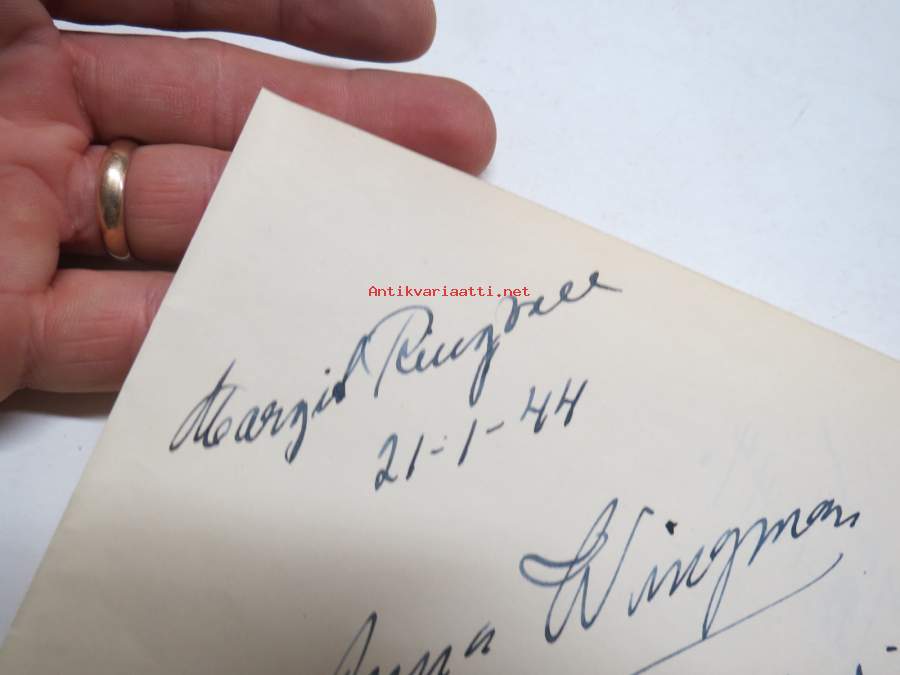 Antikvariaatti.net
Margit Ringvall
21-1-44
Wingman